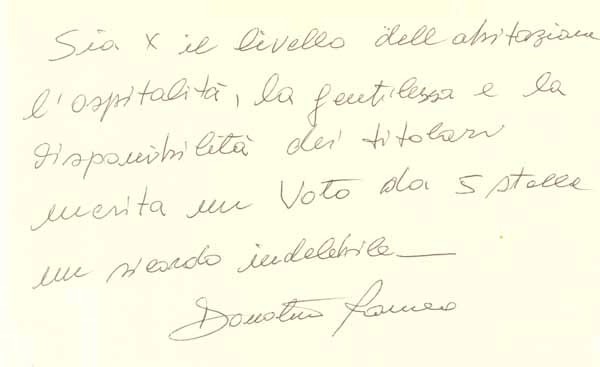 Sia x il livello dell'abitazione
l'ospitalità, la gentilezza e la
disponibilità dei titolari
merita un Voto da 5 stelle
un ricordo indelebile